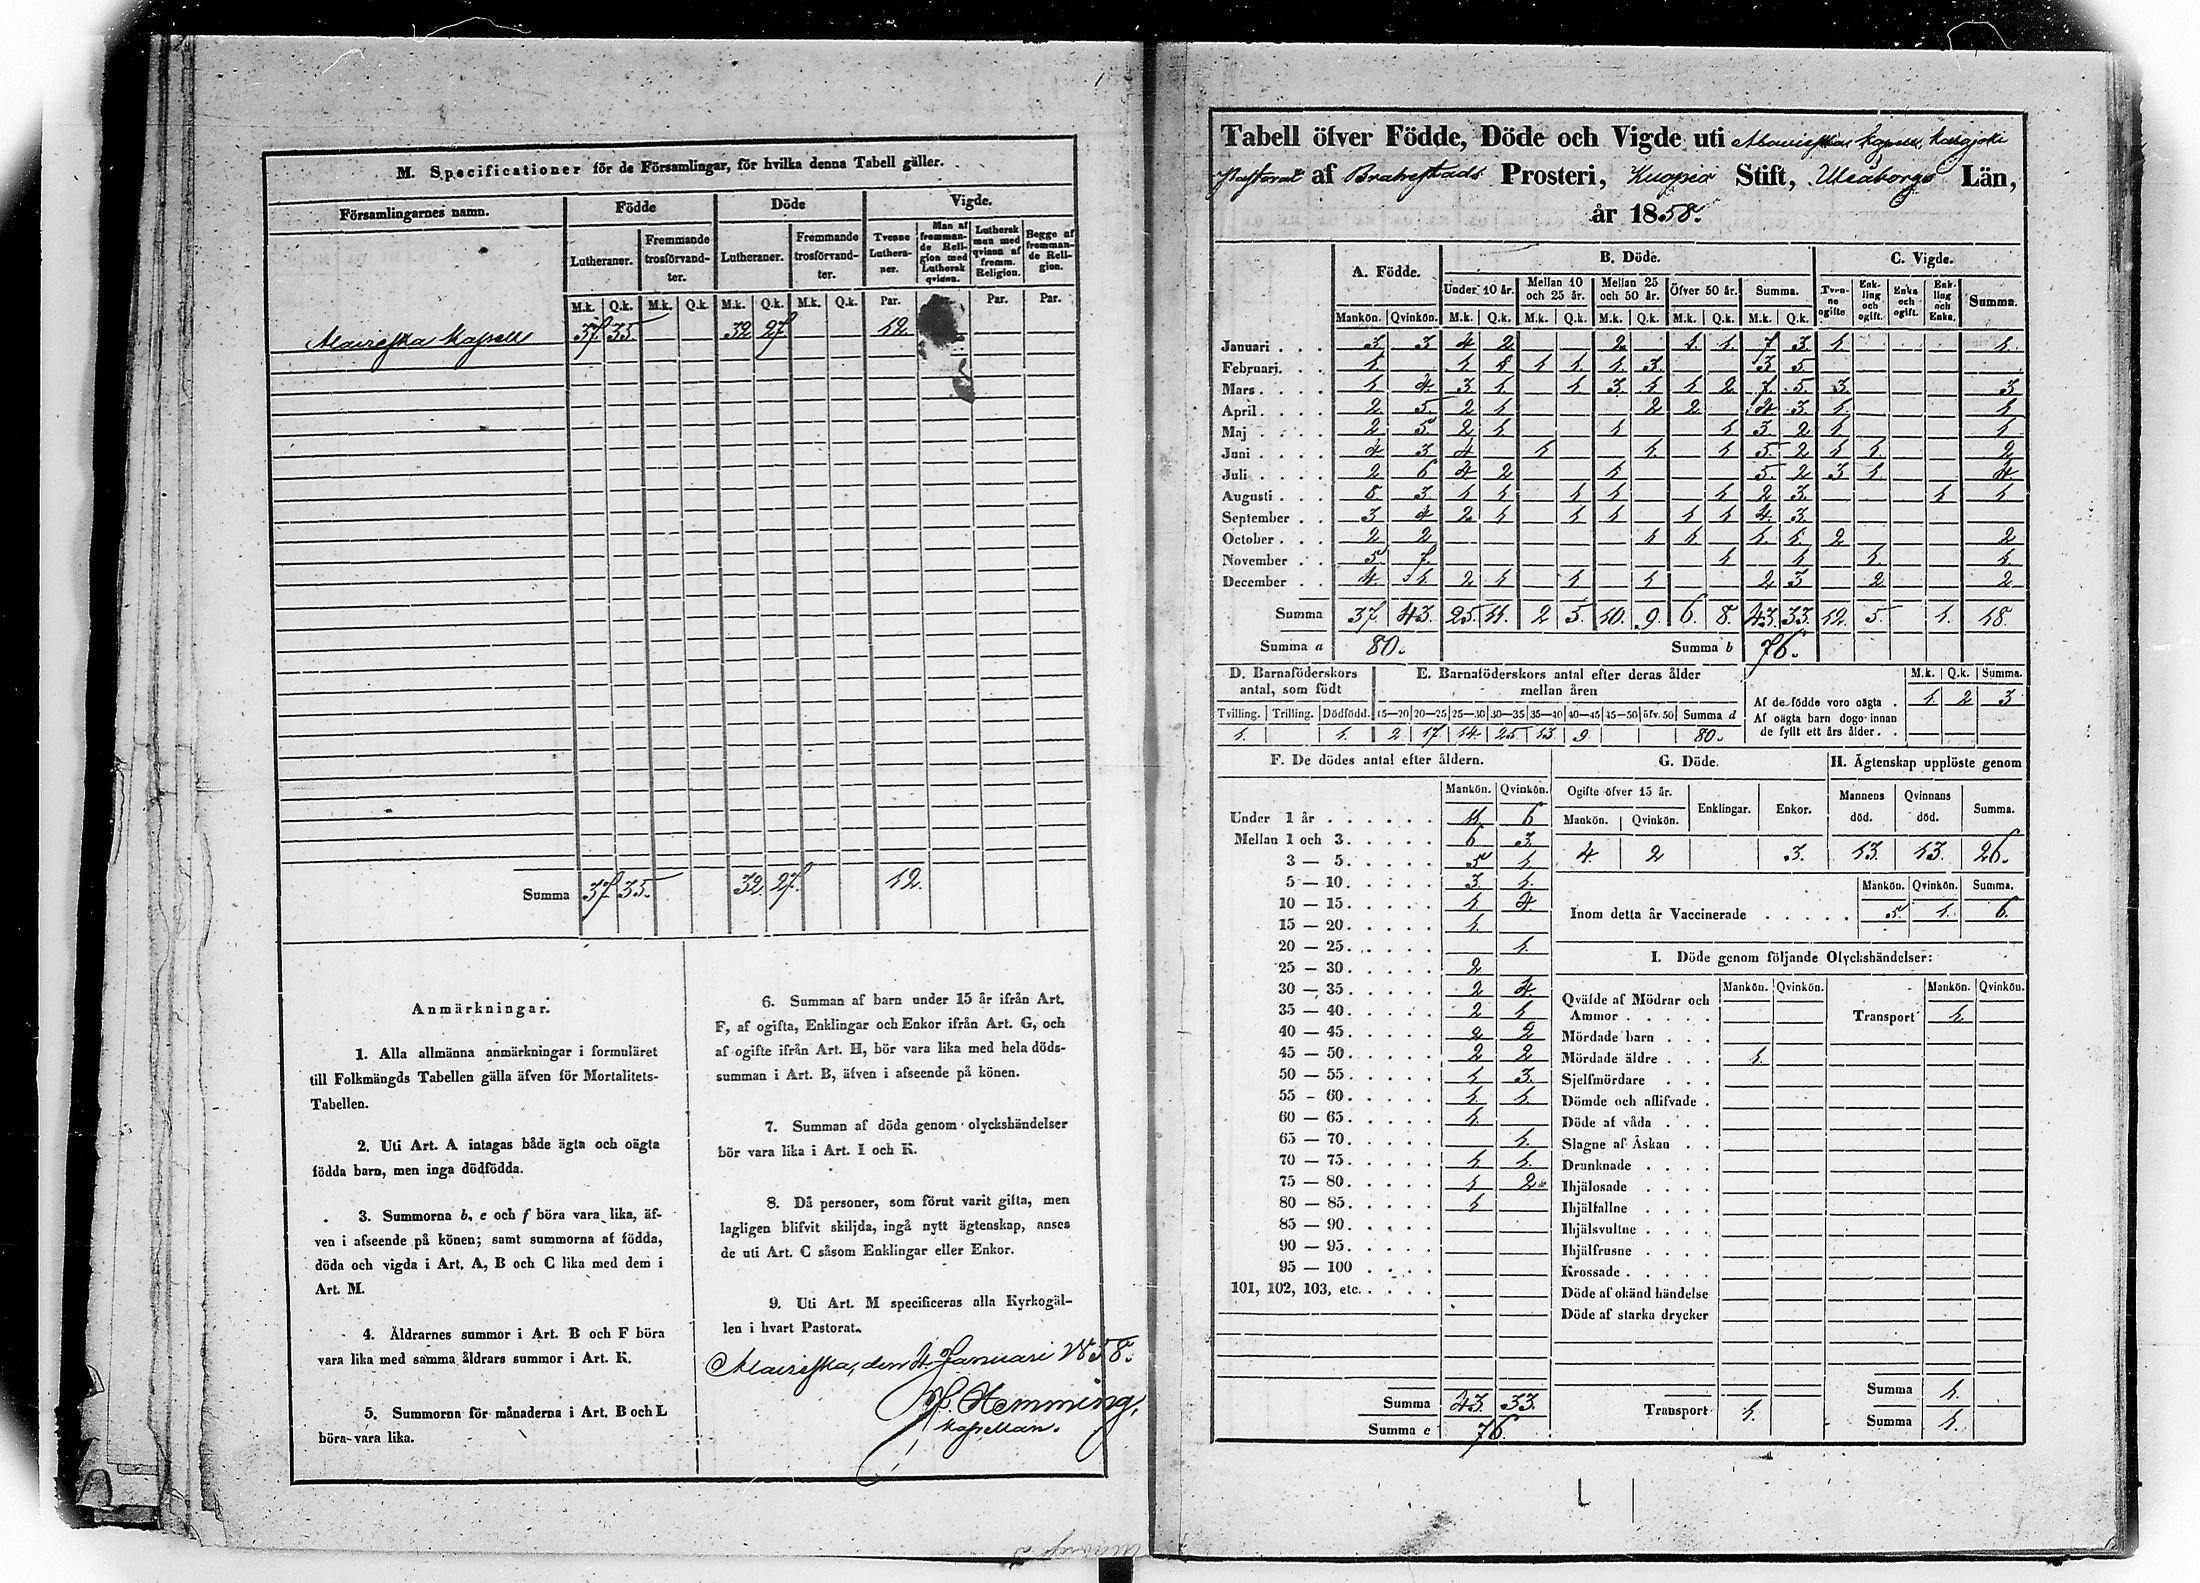 M. Specificationer för de Församlingar, för hvilka denna Tabell gäller.
Församlingarnes namn. Födde Döde Vigde.
Lutheraner. Fremmande trosförvandter. Lutheraner. Fremmande trosförvandter. Tvenne Lutheraner. Man af fremmande Religion med Luthersk qvinna. Luthersk man med qvinna af fremm. Religion. Begge af fremmande Religion.
M.k. Q.k. M.k. Q.k. M.k. Q.k. M.k. Q.k. Par. Par. Par.
Alavieska Kapell 37. 35. 32 27. 12
Summa 37. 35. 32. 27. 12.
Anmärkningar.
1. Alla allmänna anmärkningar i formuläret
till Folkmängds Tabellen gälla äfven för Mortalitets-
Tabellen.
2. Uti Art. A intagas både ägta och oägta
födda barn, men inga dödfödda.
3. Summorna b, e och f böra vara lika, äf-
ven i afseende på könen; samt summorna af födda,
döda och vigda i Art. A, B och C lika med dem i
Art. M.
4. Åldrarnes summor i Art. B och F böra
vara lika med samma åldrars summor i Art. K.
5. Summorna för månaderna i Art. B och L
böra vara lika.
6. Summan af barn under 15 år ifrån Art.
F, af ogifta, Enklingar och Enkor ifrån Art. G, och
af ogifte ifrån Art. H, bör vara lika med hela döds-
summan i Art. B, äfven i afseende på könen.
7. Summan af döda genom olyckshändelser
bör vara lika i Art. I och K.
8. Då personer, som förut varit gifta, men
lagligen blifvit skiljda, ingå nytt ägtenskap, anses
de uti Art. C såsom Enklingar eller Enkor.
9. Uti Art. M specificeras alla Kyrkogäl-
len i hvart Pastorat.
Alavieska, den 11 Januari 1858.
Hemming,
Kapellan.
Tabell öfver Födde, Döde och Vigde uti Alavieska Kapell, Kalajoki
Pastorat af Brahestads Prosteri, Kuopio Stift, Uleåborgs Län,
år 1858.
A. Födde. B. Döde. C. Vigde.
Under 10 år. Mellan 10 och 25 år. Mellan 25 och 50 år. Öfver 50 år. Summa. Tvenne ogifte. Enkling och ogift. Enka och ogift. Enkling och Enka. Summa.
Mankön. Qvinkön. M.k. Q.k. M.k. Q.k. M.k. Q.k. M.k. Q.k. M.k. Q.k.
Januari . . . 3 3 4 2 2 1. 1. 7 3 1 1.
Februari. . . 1. 1. 1 1. 1. 1. 3. 3 5
Mars . . . . 1 4. 3 1. 1 3. 1 1 2 7. 5. 3. 3
April . . . . 2 5. 2 1 2 2 4 3 1. 1
Maj . . . . 2 5. 2 1 1 1 3. 2 1 1
Juni . . . . 4 3 4 1 1. 1 5. 2 1 1. 2
Juli . . . . 2 6 4 2 1 5. 2 3 1 4
Augusti . . . 8. 3. 1 1 1 1 1 2 3. 1 1
September . . 3 4 2 1 1 1 1 1 4. 3
October . . . 2 2 1 1. 1. 1. 2 2
November . . 5. 7. 1 1 1. 1
December . . 4 1 2 1 1 1 2 3 2 2
Summa 37. 43. 25. 11. 2 5. 10. 9. 6. 8. 43. 33. 12. 5. 1. 18.
Summa a 80. Summa b 76.
D. Barnaföderskors antal, som födt
Tvilling. Trilling. Dödfödd.
1. 1.
E. Barnaföderskors antal efter deras ålder mellan åren
15—20 20—25 25—30 30—35 35—40 40—45 45—50 öfv. 50 Summa d
2 17 14. 25. 13. 9. 80.
M.k. Q.k. Summa.
Af de födde voro oägta . 1. 2 3
Af oägta barn dogo innan
de fyllt ett års ålder. .
F. De dödes antal efter åldern.
Mankön. Qvinkön.
Under 1 år . . . . . . 11. 6
Mellan 1 och 3. . . . . 6 3.
3 — 5. . . . . 5 1
5 — 10. . . . . 3 1.
10 — 15. . . . . 1. 4.
15 — 20. . . . . 1.
20 — 25. . . . . 1.
25 — 30. . . . . 2
30 — 35. . . . . 2 4.
35 — 40. . . . . 2 1
40 — 45. . . . . 2 2
45 — 50. . . . . 2 2
50 — 55. . . . . 1 3.
55 - 60. . . . . 1. 1.
60 — 65. . . . . 1.
65 — 70. . . . . 1.
70 — 75. . . . . 1 1.
75 — 80. . . . . 1 2
80 — 85. . . . . 1
85 — 90. . . . .
90 — 95. . . . .
95 — 100 . . . .
101, 102, 103, etc. . . . .
Summa 43. 33.
Summa e 76.
G. Döde.
Ogifte öfver 15 år. Enklingar. Enkor.
Mankön. Qvinkön.
4. 2 3.
H. Ägtenskap upplöste genom
Mannens död. Qvinnans död. Summa.
13. 13. 26.
Mankön. Qvinkön. Summa.
Inom detta år Vaccinerade . . . . . 5. 1. 6.
I. Döde genom följande Olyckshändelser:
Mankön. Qvinkön. Mankön. Qvinkön.
Qväfde af Mödrar och
Ammor . . . . . Transport 1.
Mördade barn . . .
Mördade äldre . . . 1.
Sjelfmördare . . .
Dömde och aflifvade .
Döde af våda . . .
Slagne af Åskan . .
Drunknade . . . .
Ihjälosade . . . .
Ihjälfallne . . . .
Ihjälsvultne . . . .
Ihjälfrusne . . . .
Krossade . . . . .
Döde af okänd händelse
Döde af starka drycker
Summa 1.
Transport 1. Summa 1.